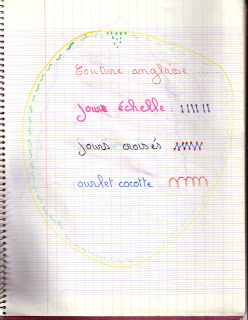 Couture anglaise ........
jours échelle :
jours croisés
ourlet cocotte